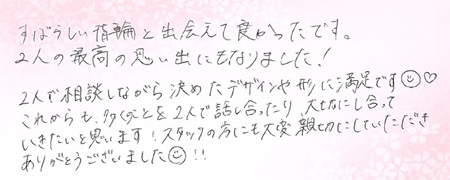 すばらしい指輪と出会えて良かったです。
2人の最高の思い出にもなりました！
2人で相談しながら決めたデザインや形に満足です☺♡
これからも、多くのことを2人で話し合ったり、大切にし合って
いきたいと思います！スタッフの方にも大変親切にしていただき
ありがとうございました☺!!